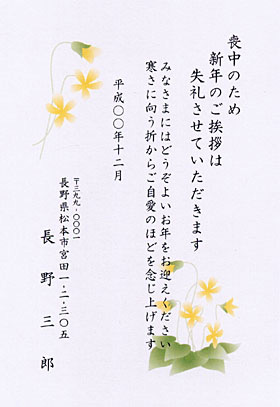 喪中のため
新年のご挨拶は
失礼させていただきます
みなさまにはどうぞよいお年をお迎えください
寒さに向う折からご自愛のほどを念じ上げます
平成〇〇年十二月
〒三九九-〇〇〇一
長野県松本市宮田一-二-三〇五
長野三郎